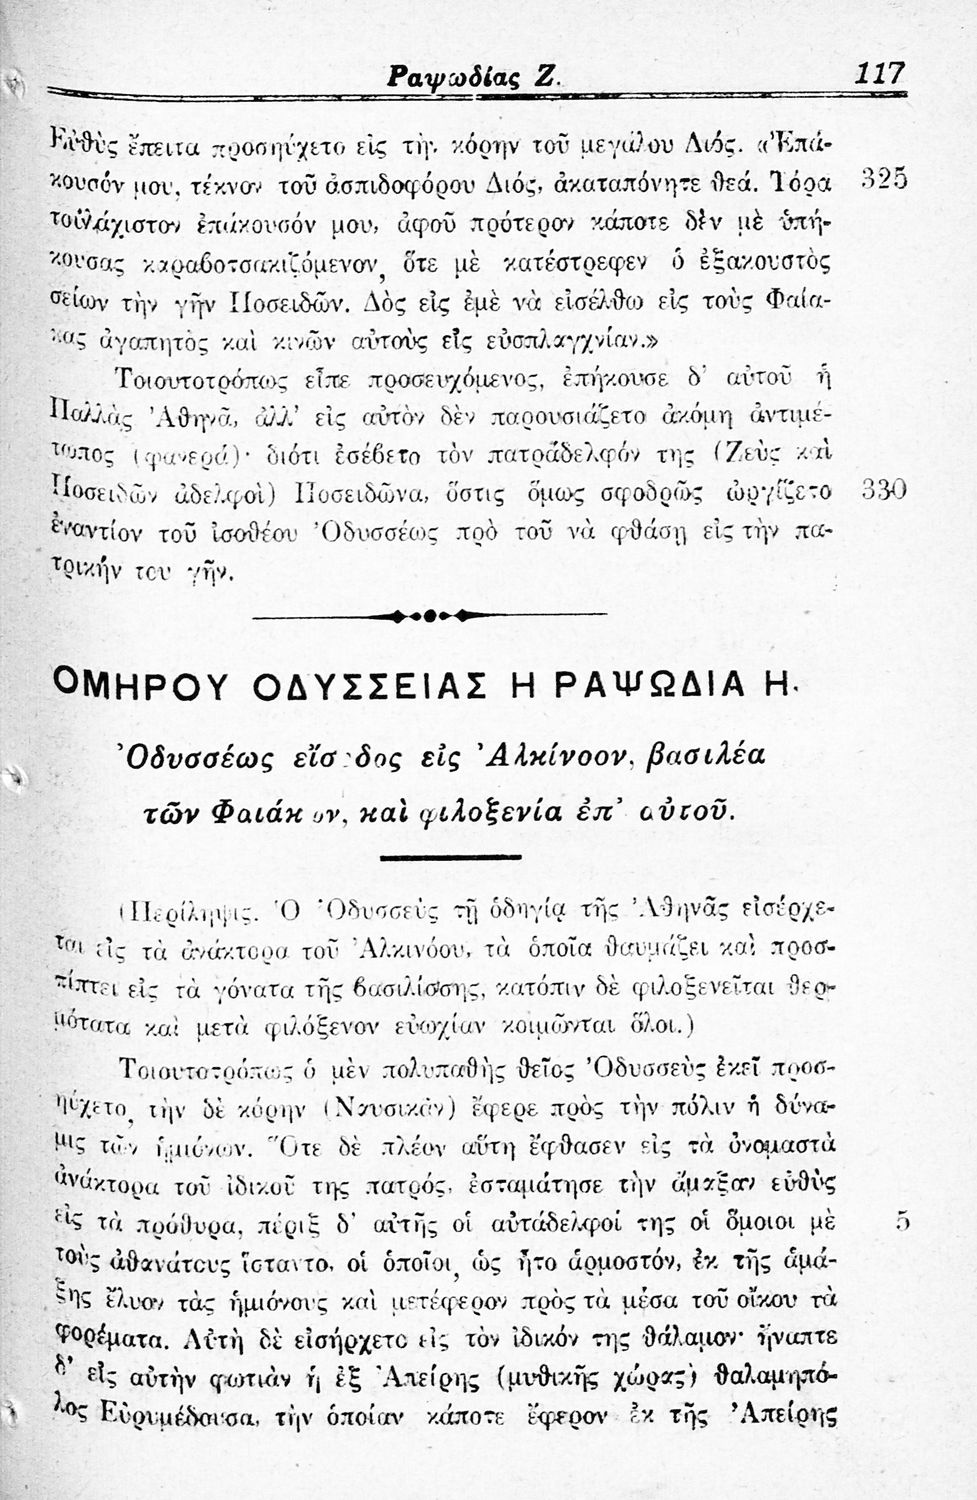 Ραψωδίας Ζ. 117
Εὐθὺς ἔπειτα προσηύχετο εἰς τὴν κόρην τοῦ μεγάλου Διός. «Ἐπά-
κουσόν μου, τέκνον τοῦ ἀσπιδοφόρου Διός, ἀκαταπόνητε θεά. Τόρα 325
τοὐλάχιστον ἐπάκουσόν μου, ἀφοῦ πρότερον κάποτε δὲν μὲ ὑπή-
κουσας καραβοτσακιζόμενον, ὅτε μὲ κατέστρεφεν ὁ ἐξακουστὸς
σείων τὴν γῆν Ποσειδῶν. Δὸς εἰς ἐμὲ νὰ εἰσέλθω εἰς τοὺς Φαία-
κας ἀγαπητὸς καὶ κινῶν αὐτοὺς εἰς εὐσπλαγχνίαν.»
Τοιουτοτρόπως εἶπε προσευχόμενος, ἐπήκουσε δ' αὐτοῦ ἡ
Παλλὰς Ἀθηνᾶ, ἀλλ' εἰς αὐτὸν δὲν παρουσιάζετο ἀκόμη ἀντιμέ-
τωπος (φανερά)· διότι ἐσέβετο τὸν πατράδελφόν της (Ζεὺς καὶ
Ποσειδῶν ἀδελφοὶ) Ποσειδῶνα, ὅστις ὅμως σφοδρῶς ὠργίζετο 330
ἐναντίον τοῦ ἰσοθέου Ὀδυσσέως πρὸ τοῦ νὰ φθάσῃ εἰς τὴν πα-
τρικήν του γῆν.
ΟΜΗΡΟΥ ΟΔΥΣΣΕΙΑΣ Η ΡΑΨΩΔΙΑ Η.
Ὀδυσσέως εἴσοδος εἰς Ἀλκίνοον, βασιλέα
τῶν Φαιάκων, καὶ φιλοξενία ἐπ' αὐτοῦ.
(Περίληψις. Ὁ Ὀδυσσεὺς τῇ ὁδηγίᾳ τῆς Ἀθηνᾶς εἰσέρχε-
ται εἰς τὰ ἀνάκτορα τοῦ Ἀλκινόου, τὰ ὁποῖα θαυμάζει καὶ προσ-
πίπτει εἰς τὰ γόνατα τῆς βασιλίσσης, κατόπιν δὲ φιλοξενεῖται θερ-
μότατα καὶ μετὰ φιλόξενον εὐωχίαν κοιμῶνται ὅλοι.)
Τοιουτοτρόπως ὁ μὲν πολυπαθὴς θεῖος Ὀδυσσεὺς ἐκεῖ προσ-
ηύχετο, τὴν δὲ κόρην (Ναυσικᾶν) ἔφερε πρὸς τὴν πόλιν ἡ δύνα-
μις τῶν ἡμιόνων. Ὅτε δὲ πλέον αὕτη ἔφθασεν εἰς τὰ ὀνομαστὰ
ἀνάκτορα τοῦ ἰδικοῦ της πατρός, ἐσταμάτησε τὴν ἅμαξαν εὐθὺς
εἰς τὰ πρόθυρα, πέριξ δ' αὐτῆς οἱ αὐτάδελφοί της οἱ ὅμοιοι μὲ 5
τοὺς ἀθανάτους ἵσταντο, οἱ ὁποῖοι, ὡς ἦτο ἁρμοστόν, ἐκ τῆς ἁμά-
ξης ἔλυον τὰς ἡμιόνους καὶ μετέφερον πρὸς τὰ μέσα τοῦ οἴκου τὰ
φορέματα. Αὐτὴ δὲ εἰσήρχετο εἰς τὸν ἰδικόν της θάλαμον· ἤναπτε
δ' εἰς αὐτὴν φωτιὰν ἡ ἐξ Ἀπείρης (μυθικῆς χώρας) θαλαμηπό-
λος Εὐρυμέδουσα, τὴν ὁποίαν κάποτε ἔφερον ἐκ τῆς Ἀπείρης